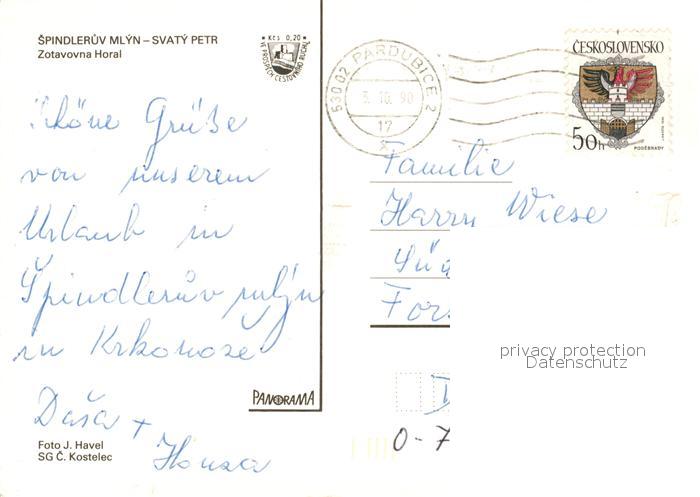 ŠPINDLERŮV MLÝN – SVATÝ PETR
Zotavovna Horal
* Kčs 0,20 *
VE PROSPĚCH CESTOVNÍHO RUCHU
530 02 PARDUBICE 2
5.10.90
17
x
ČESKOSLOVENSKO
50h
PODĚBRADY
Schöne Grüße
von unserem
Urlaub in
Špindlerův mlýn
in Krkonoše
Dáša +
Honza
Familie
Harry Wiese
Sü
For
D
O-7
privacy protection
Datenschutz
PANORAMA
Foto J. Havel
SG Č. Kostelec